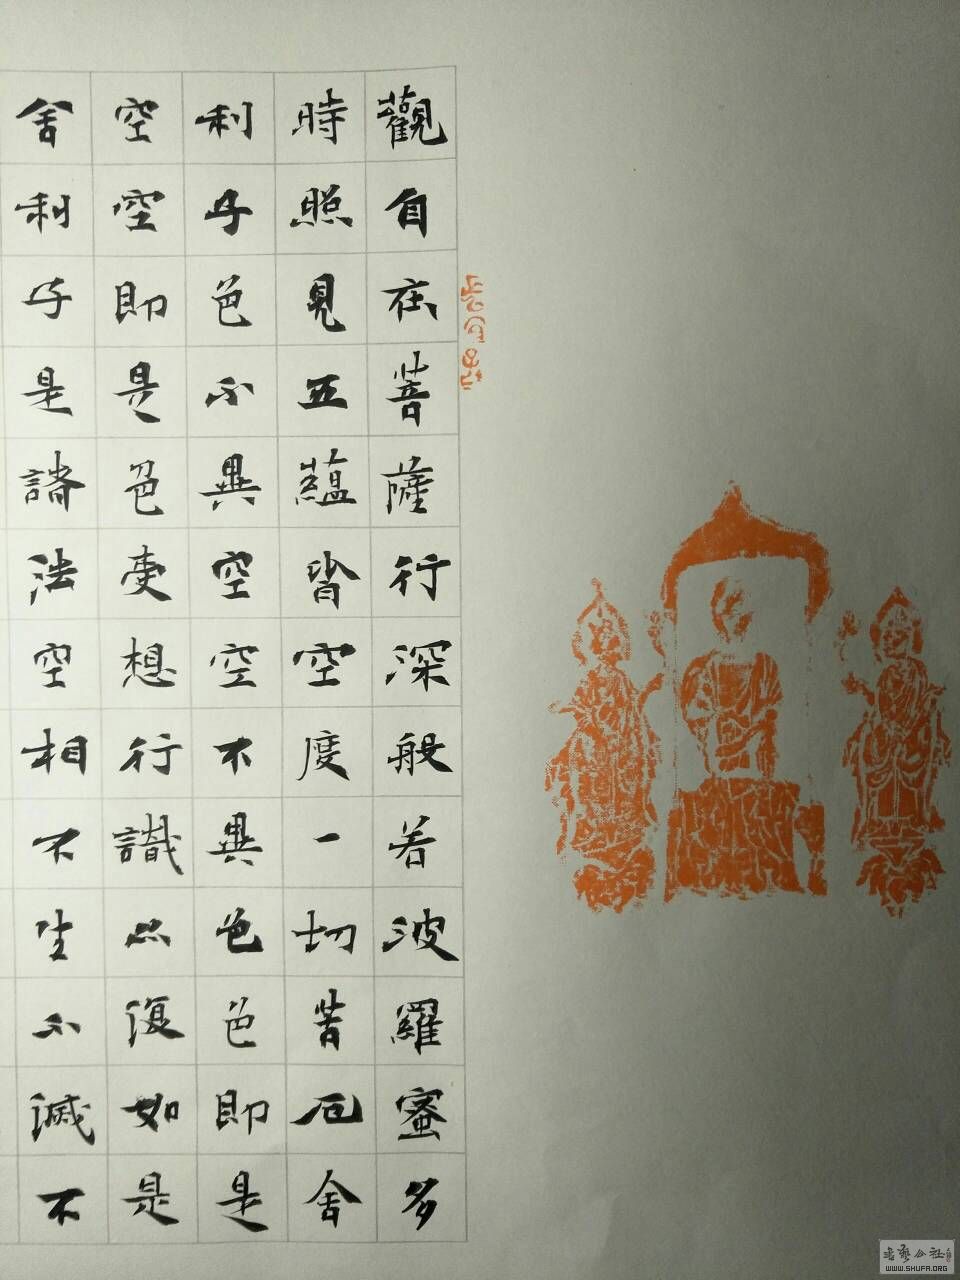 觀自在菩薩行深般若波羅蜜多
時照見五蘊皆空度一切苦厄舍
利子色不異空空不異色色即是
空空即是色受想行識亦復如是
舍利子是諸法空相不生不滅不
WWW.SHUFA.ORG